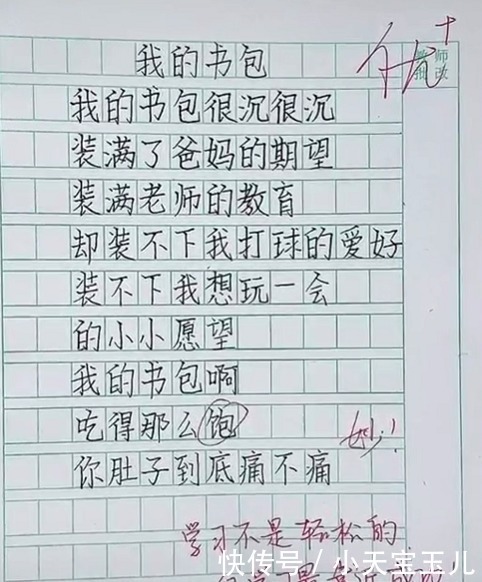 优+
教师
批改
我的书包
我的书包很沉很沉
装满了爸妈的期望
装满老师的教育
却装不下我打球的爱好
装不下我想玩一会
的小小愿望
我的书包啊
吃得那么饱
妙!
你肚子到底痛不痛
学习不是轻松的
快传号/小天宝玉儿